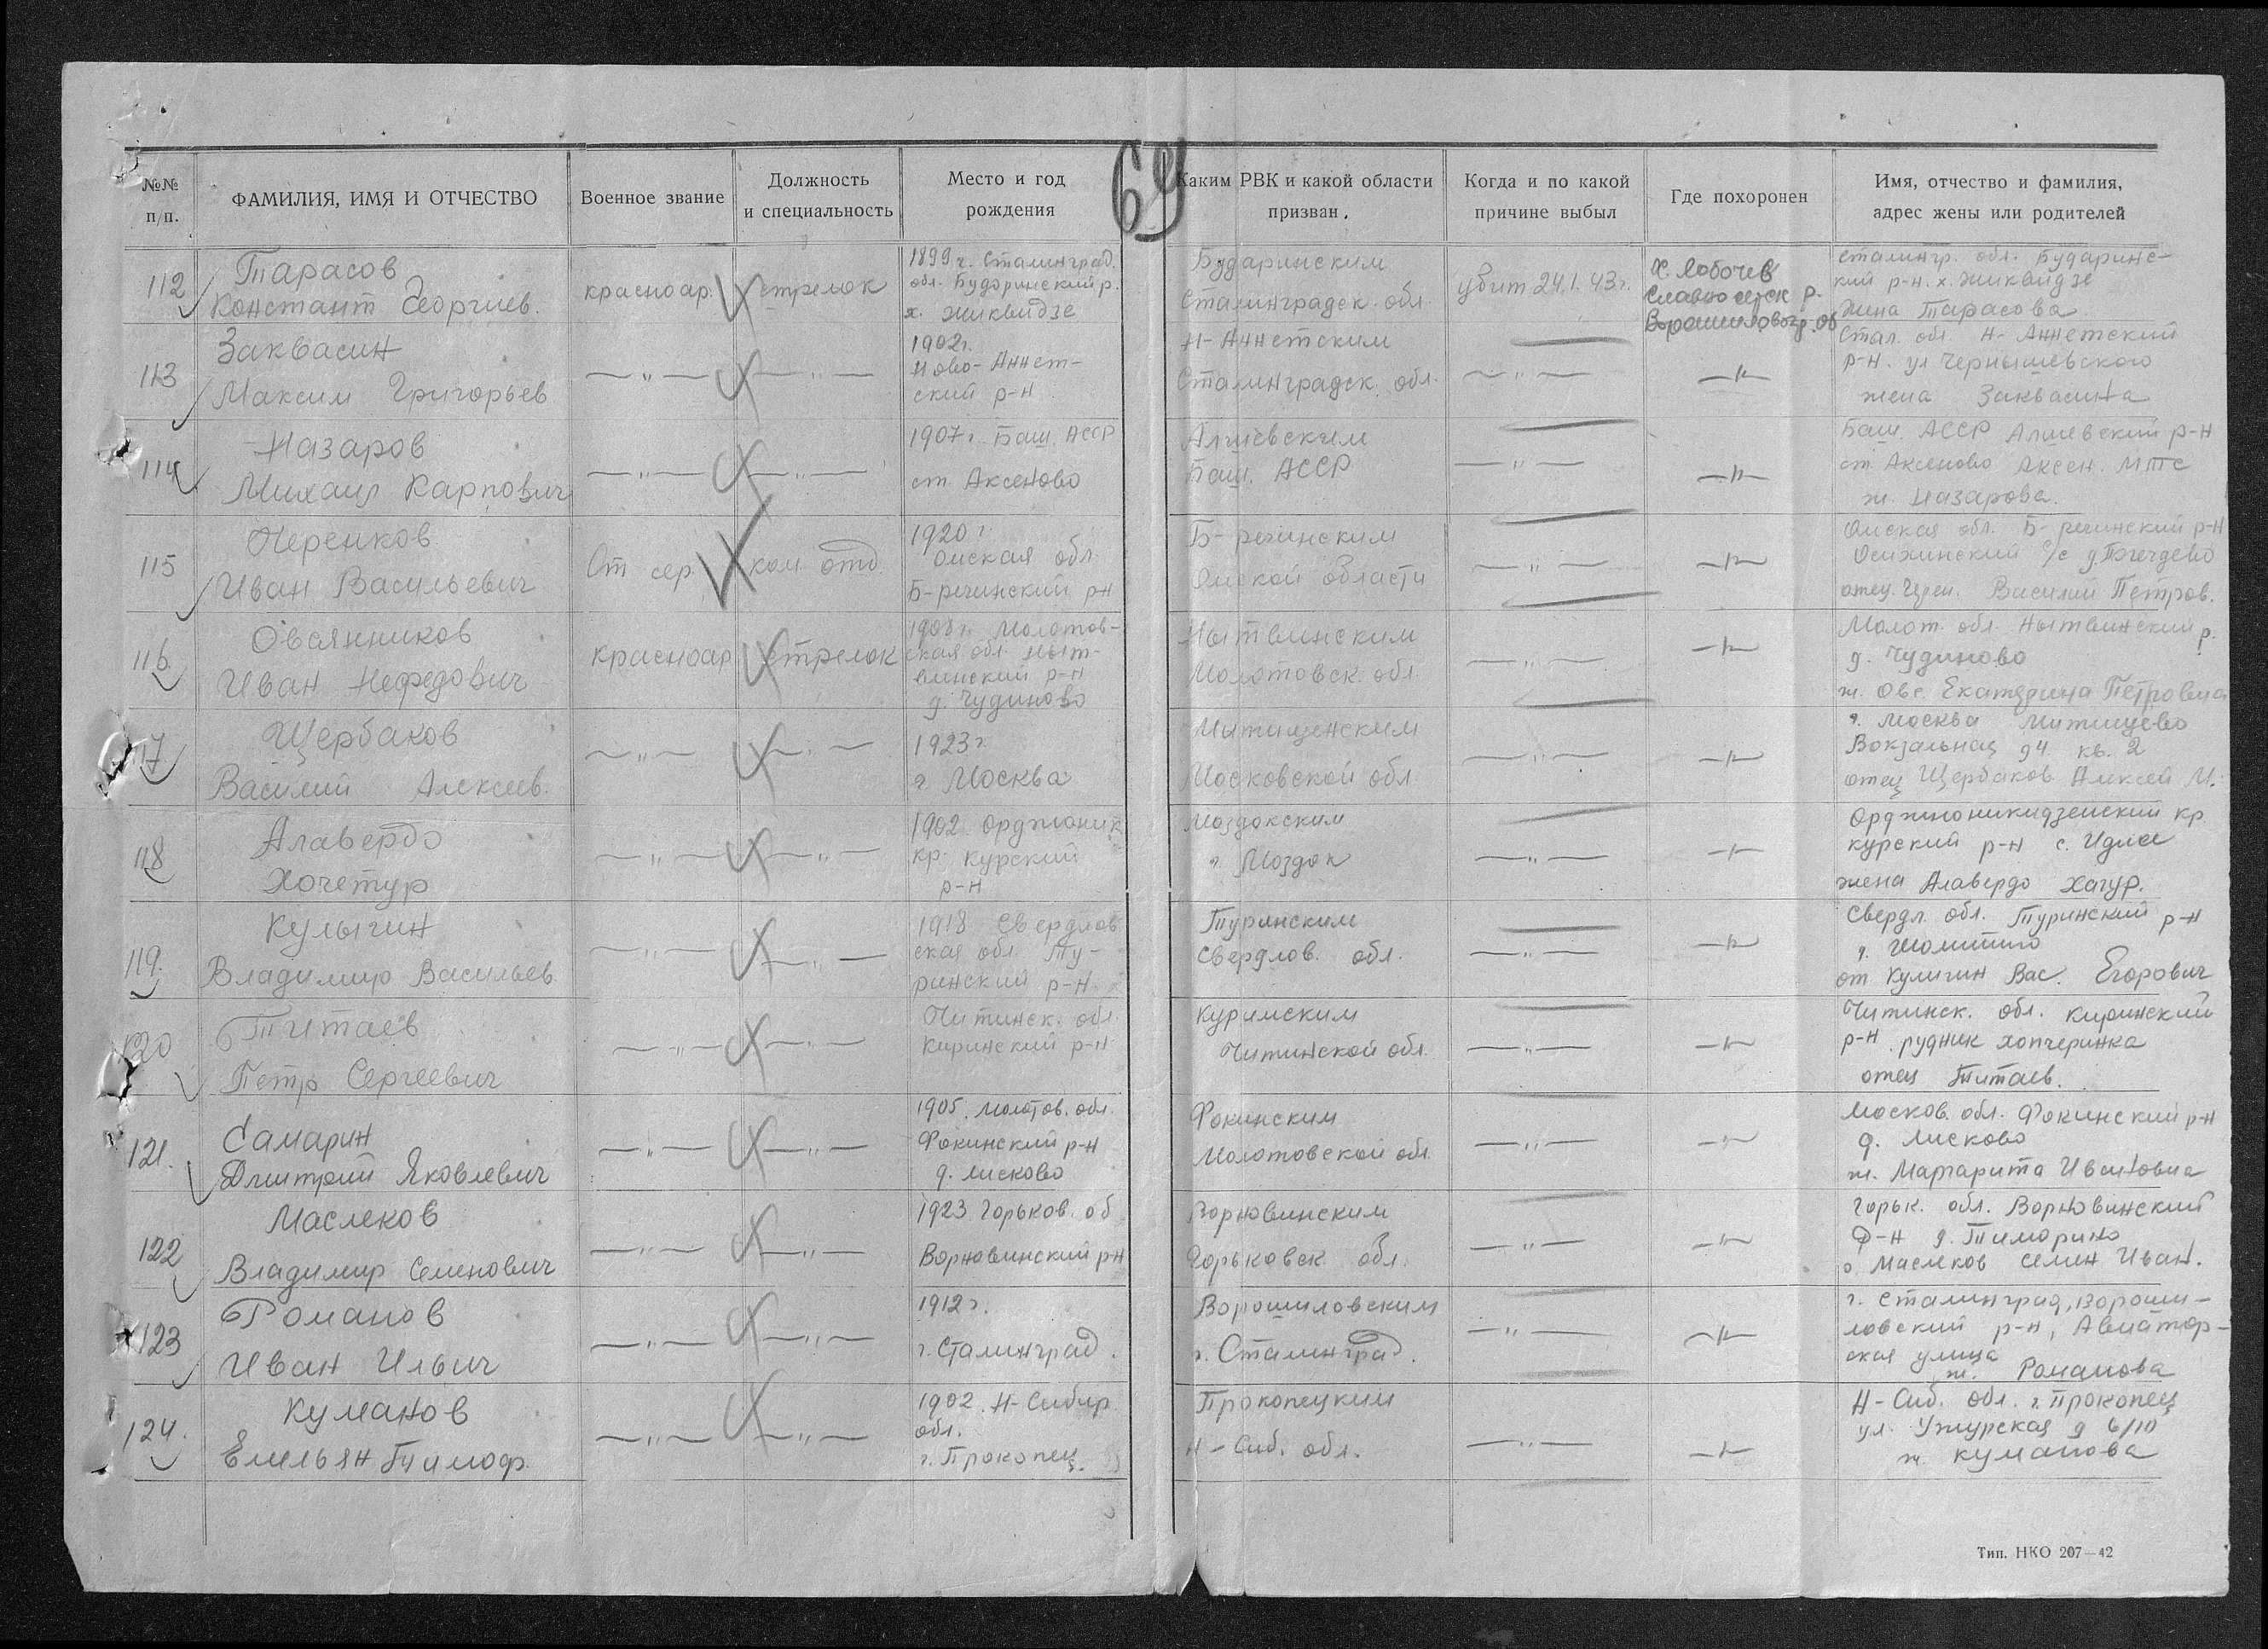 69
№№ п/п.
ФАМИЛИЯ, ИМЯ И ОТЧЕСТВО
Военное звание
Должность
и специальность
Место и год
рождения
Каким РВК и какой области
призван.
Когда и по какой
причине выбыл
Где похоронен
Имя, отчество и фамилия,
адрес жены или родителей
112
Тарасов
Констант Георгиев.
красноар.
стрелок
1899 г. Сталинград.
обл. Бударинский р.
х. Киквидзе
Бударинским
Сталинградск. обл.
убит 24.1.43 г.
Х. Лобочев
Славяносерск р.
Ворошиловогр. об
Сталингр. обл. Бударинс-
кий р-н. х. Киквидзе
Жина Тарасова
113
Заквасин
Максим Григорьев
—„—
—„—
1902 г.
Ново-Аннет-
ский р-н
Н-Аннетским
Сталинградск. обл.
—„—
—„—
Стал. обл. Н-Аннетский
р-н. ул Чернышевского
жена Заквасина
114
Назаров
Михаил Карпович
—„—
—„—
1907 г. Баш. АССР
ст. Аксеново
Алшевским
Баш. АССР
—„—
—„—
Баш. АССР Алшевский р-н
ст. Аксеново Аксен. МТС
ж. Назарова.
115
Черенков
Иван Васильевич
Ст сер.
ком. отд.
1920 г
Омская обл.
Б-речинский р-н
Б-речинским
Омской области
—„—
—„—
Омская обл. Б-речинский р-н
с/с
отец Черен. Василий Петров.
116.
Овсянников
Иван Нефедович
красноар
стрелок
1908 г. Молотов-
ская обл. Ныт-
винский р-н
д. Чудиново
Нытвинским
Молотовск. обл.
—„—
—„—
Молот. обл. Нытвинский р.
д. Чудиново
ж. Овс. Екатерина Петровна
117
Щербаков
Василий Алексеев.
—„—
—„—
1923 г.
г. Москва
Митищенским
Московской обл.
—„—
—„—
г. Москва Митищево
Вокзальная д 4 кв. 2
отец Щербаков Алексей М.
118
Алавердо
Хочетур
—„—
—„—
1902 Орджоник
кр. Курский
р-н
Моздокским
г. Моздок
—„—
—„—
Орджоникидзенский кр.
курский р-н с.
жена Алавердо Хатур.
119.
Кулыгин
Владимир Васильев
—„—
—„—
1918 Свердлов
ская обл. Ту-
ринский р-н.
Туринским
Свердлов. обл.
—„—
—„—
Свердл. обл. Туринский р-н
д.
от Кулигин Вас. Егорович
120
Титаев
Петр Сергеевич
—„—
—„—
Читинск. обл.
Киринский р-н
Куринским
Читинской обл.
—„—
—„—
Читинск. обл. Киринский
р-н. рудник хопчеринка
отец Титаев.
121.
Самарин
Дмитрий Яковлевич
—„—
—„—
1905. Молотов. обл.
Фокинский р-н
д. Лисково
Фокинским
Молотовской обл.
—„—
—„—
Москов. обл. Фокинский р-н
д. Лисково
ж. Маргарита Ивановна
122
Маслеков
Владимир Семенович
—„—
—„—
1923 Горьков. об
Ворновинский р-н
Ворновинским
Горьковск. обл.
—„—
—„—
Горьк. обл. Ворновинский
р-н д. Тиморино
о. Маслеков Семен Иван.
123
Романов
Иван Ильич
—„—
—„—
1912 г.
г. Сталинград.
Ворошиловским
г. Сталинград.
—„—
—„—
г. Сталинград, Вороши-
ловский р-н, Авиатор-
ская улица
ж. Романова
124.
Куманов
Емельян Тимоф.
—„—
—„—
1902. Н-Сибир.
обл.
г. Прокопец.
Прокопецким
Н-Сиб. обл.
—„—
—„—
Н-Сиб. обл. г. Прокопец
ул. Ужурская д 6/10
ж. Куманова
Тип. НКО 207—42